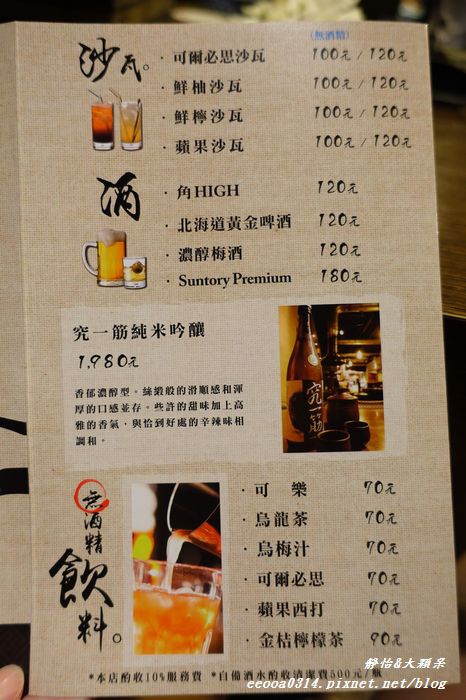 (無酒精)
沙瓦。
·可爾必思沙瓦 100元 / 120元
·鮮柚沙瓦 100元 / 120元
·鮮檸沙瓦 100元 / 120元
·蘋果沙瓦 100元 / 120元
酒
·角HIGH 120元
·北海道黃金啤酒 120元
·濃醇梅酒 120元
·Suntory Premium 180元
究一筋純米吟釀
1,980元
香郁濃醇型。絲緞般的滑順感和渾
厚的口感並存。些許的甜味加上高
雅的香氣，與恰到好處的辛辣味相
調和。
究一筋
無酒精飲料。
·可樂 70元
·烏龍茶 70元
·烏梅汁 70元
·可爾必思 70元
·蘋果西打 70元
·金桔檸檬茶 90元
*本店酌收10%服務費 *自備酒水酌收清潔費500元/瓶
靜怡&大顆呆
eeooa0314.pixnet.net/blog